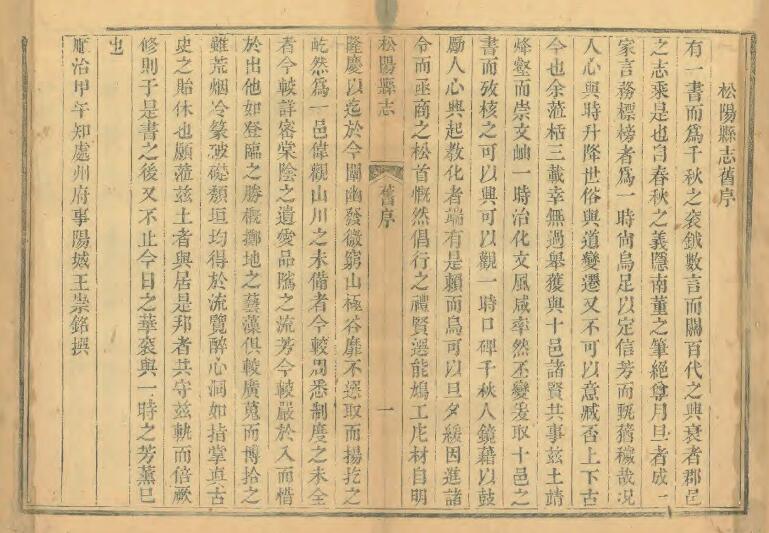 松陽縣志舊序
有一書而爲千秋之袞鉞數言而關百代之興衰者郡邑
之志乘是也自春秋之義隱南董之筆絕尊月旦者成一
家言務標榜者爲一時尙烏足以定信芳而覘猶穢哉况
人心與時升降世俗與道變遷又不可以意臧否上下古
今也余蒞栝三載幸無過舉獲與十邑諸賢共事兹土請
烽壑而崇文岫一時治化文風咸率然丕變爰取十邑之
書而攷核之可以興可以觀一時口碑千秋人鏡藉以鼓
勵人心興起教化者端有是賴而烏可以旦夕緩因進諸
令而亟商之松首慨然倡行之禮賢選能鳩工庀材自明
松陽縣志
舊序
一
隆慶以迄於今闡幽發微窮山極谷靡不選取而揚扢之
屹然爲一邑偉觀山川之未備者今較周悉制度之未全
者今較詳密棠陰之遺愛品隲之流芳今較嚴於入而惜
於出他如登臨之勝槪擲地之藝藻俱較廣蒐而博拾之
雖荒烟冷篆破碑頽垣均得於流覽醉心洞如指掌真古
史之貽休也願蒞兹土者與居是邦者共守兹軌而倍厥
修則于是書之後又不止今日之華袞與一時之芳薰已
也
順治甲午知處州府事陽城王崇銘撰